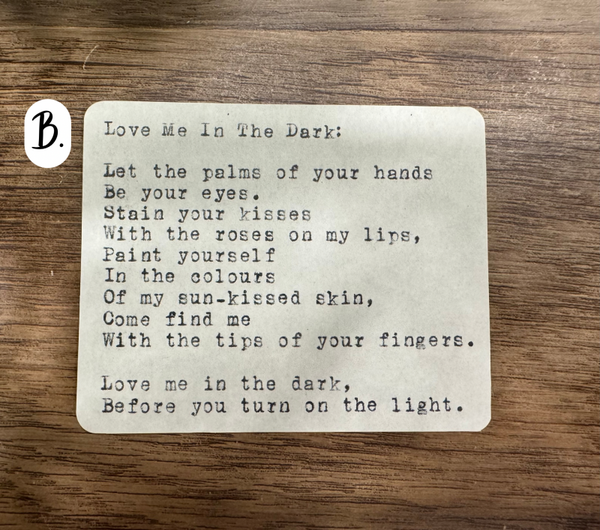 B.
Love Me In The Dark:
Let the palms of your hands
Be your eyes.
Stain your kisses
With the roses on my lips,
Paint yourself
In the colours
Of my sun-kissed skin,
Come find me
With the tips of your fingers.
Love me in the dark,
Before you turn on the light.